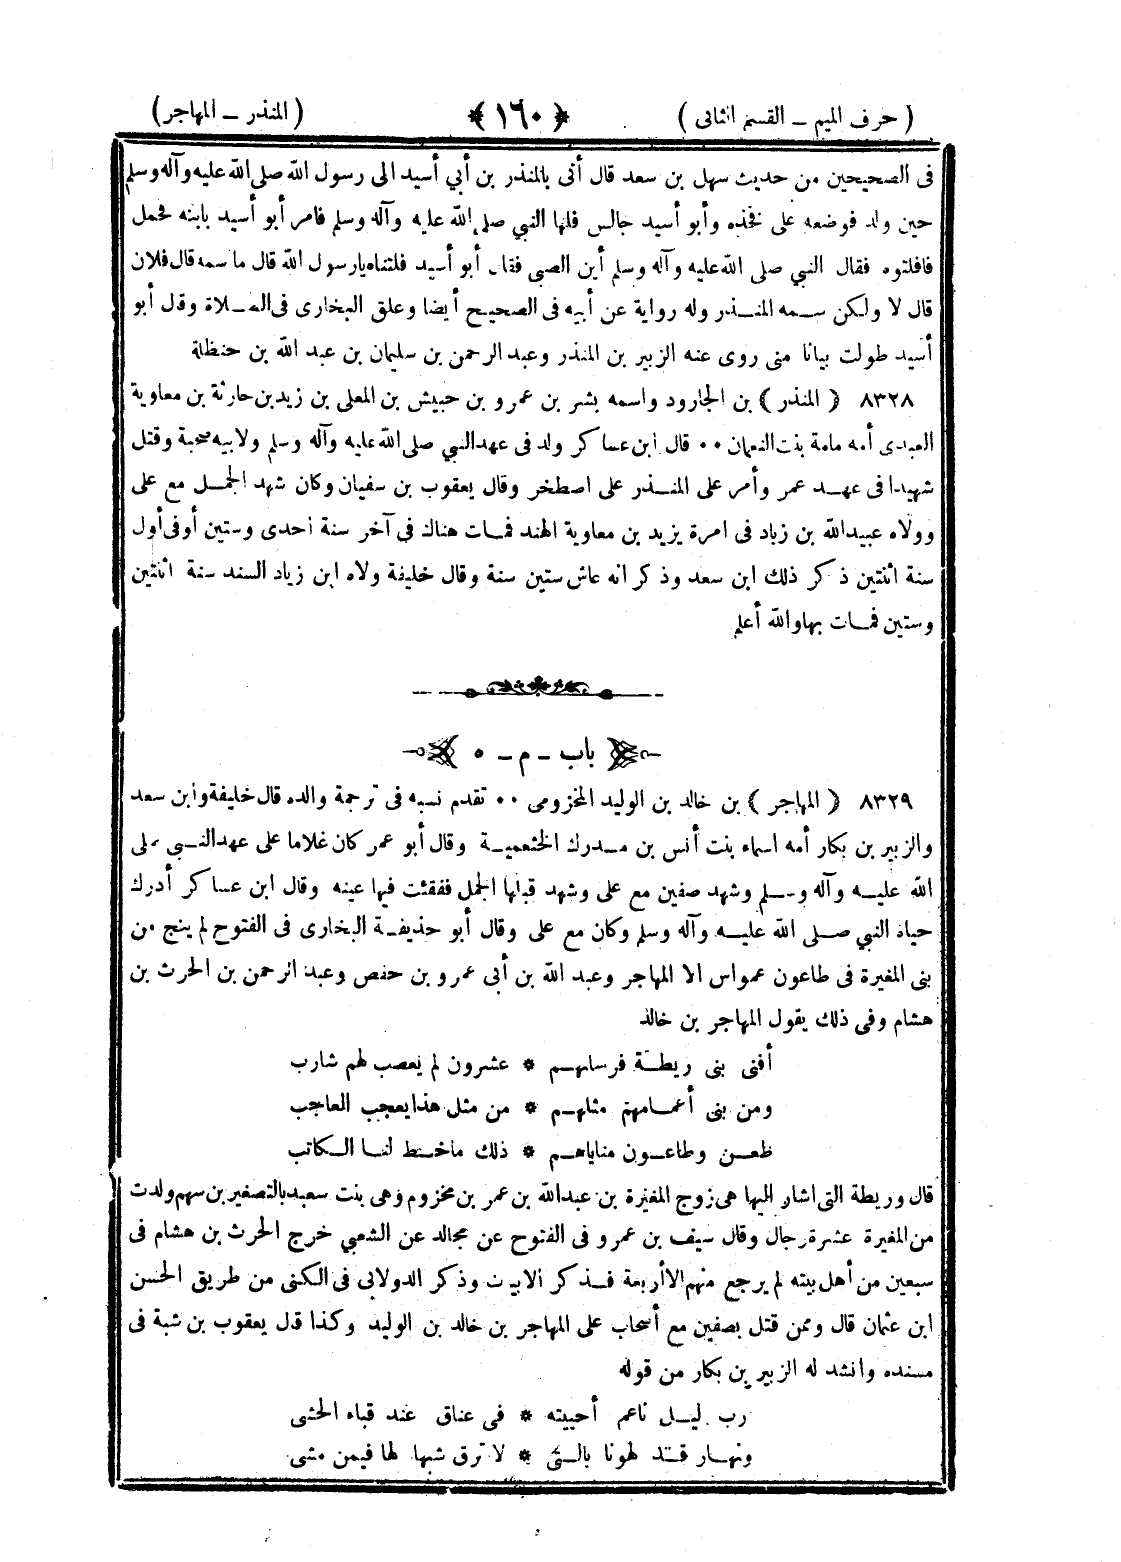 ( حرف الميم ــ القسم الثانى ) ﴿ ١٦٠ ﴾ ( المنذر ــ المهاجر )
فى الصحيحين من حديث سهل بن سعد قال أتى بالمنذر بن أبي أسيد الى رسول الله صلى الله عليه وآله وسلم
حين ولد فوضعه على فخذه وأبو أسيد جالس فلها النبي صلى الله عليه وآله وسلم فامر أبو أسيد بابنه فحمل
فاقلتوه فقال النبي صلى الله عليه وآله وسلم أين الصبى فقال أبو أسيد قلتناه يارسول الله قال ما سمه قال فلان
قال لا ولكن سمه المنذر وله رواية عن أبيه فى الصحيح أيضا وعلق البخارى فى الصلاة وقل أبو
أسيد طولت بيانا منى روى عنه الزبير بن المنذر وعبد الرحمن بن سليمان بن عبد الله بن حنظلة
٨٣٢٨ ( المنذر ) بن الجارود واسمه بشر بن عمرو بن حبيش بن المعلى بن زيد بن حارثة بن معاوية
العبدى أمه مامة بنت النعمان ٠٠ قال ابن عساكر ولد فى عهد النبي صلى الله عليه وآله وسلم ولابيه صحبة وقتل
شهيدا فى عهد عمر وأمر على المنذر على اصطخر وقال يعقوب بن سفيان وكان شهد الجمل مع على
وولاه عبيد الله بن زياد فى امرة يزيد بن معاوية الهند فمات هناك فى آخر سنة احدى وستين أو فى أول
سنة اثنتين ذكر ذلك ابن سعد وذكر انه عاش ستين سنة وقال خليفة ولاه ابن زياد السند سنة اثنتين
وستين فمات بها والله أعلم
باب ـ م ـ ٥
٨٣٢٩ ( المهاجر ) بن خالد بن الوليد المخزومى ٠٠ تقدم نسبه فى ترجمة والده قال خليفة وابن سعد
والزبير بن بكار أمه اسماء بنت أنس بن مدرك الخثعمية وقال أبو عمر كان غلاما على عهد النبى صلى
الله عليه وآله وسلم وشهد صفين مع على وشهد قبلها الجمل ففقئت فيها عينه وقال ابن عساكر أدرك
حياة النبي صلى الله عليه وآله وسلم وكان مع على وقال أبو حذيفة البخارى فى الفتوح لم ينج من
بنى المغيرة فى طاعون عمواس الا المهاجر وعبد الله بن أبى عمرو بن حفص وعبد الرحمن بن الحرث بن
هشام وفى ذلك يقول المهاجر بن خالد
أفنى بنى ريطة فرسانهم * عشرون لم يعصب لهم شارب
ومن بنى أعمامهم مثلهم * من مثل هذا يعجب العاجب
طعن وطاعون مناياهم * ذلك ماخط لنا الكاتب
قال وريطة التى اشار اليها هى زوج المغيرة بن عبد الله بن عمر بن مخزوم وهى بنت سعيد بالتصغير بن سهم ولدت
من المغيرة عشرة رجال وقال سيف بن عمرو فى الفتوح عن مجالد عن الشعبي خرج الحرث بن هشام فى
سبعين من أهل بيته لم يرجع منهم الا أربعة فذكر الابيت وذكر الدولابى فى الكنى من طريق الحسن
ابن عثمان قال وممن قتل بصفين مع أصحاب على المهاجر بن خالد بن الوليد وكذا قال يعقوب بن شبة فى
مسنده وانشد له الزبير بن بكار من قوله
رب ليل ناعم أحييته * فى عناق عند قباء الحشى
ونهار قد لهونا بالتى * لا ترى شبها لها فيمن مشى